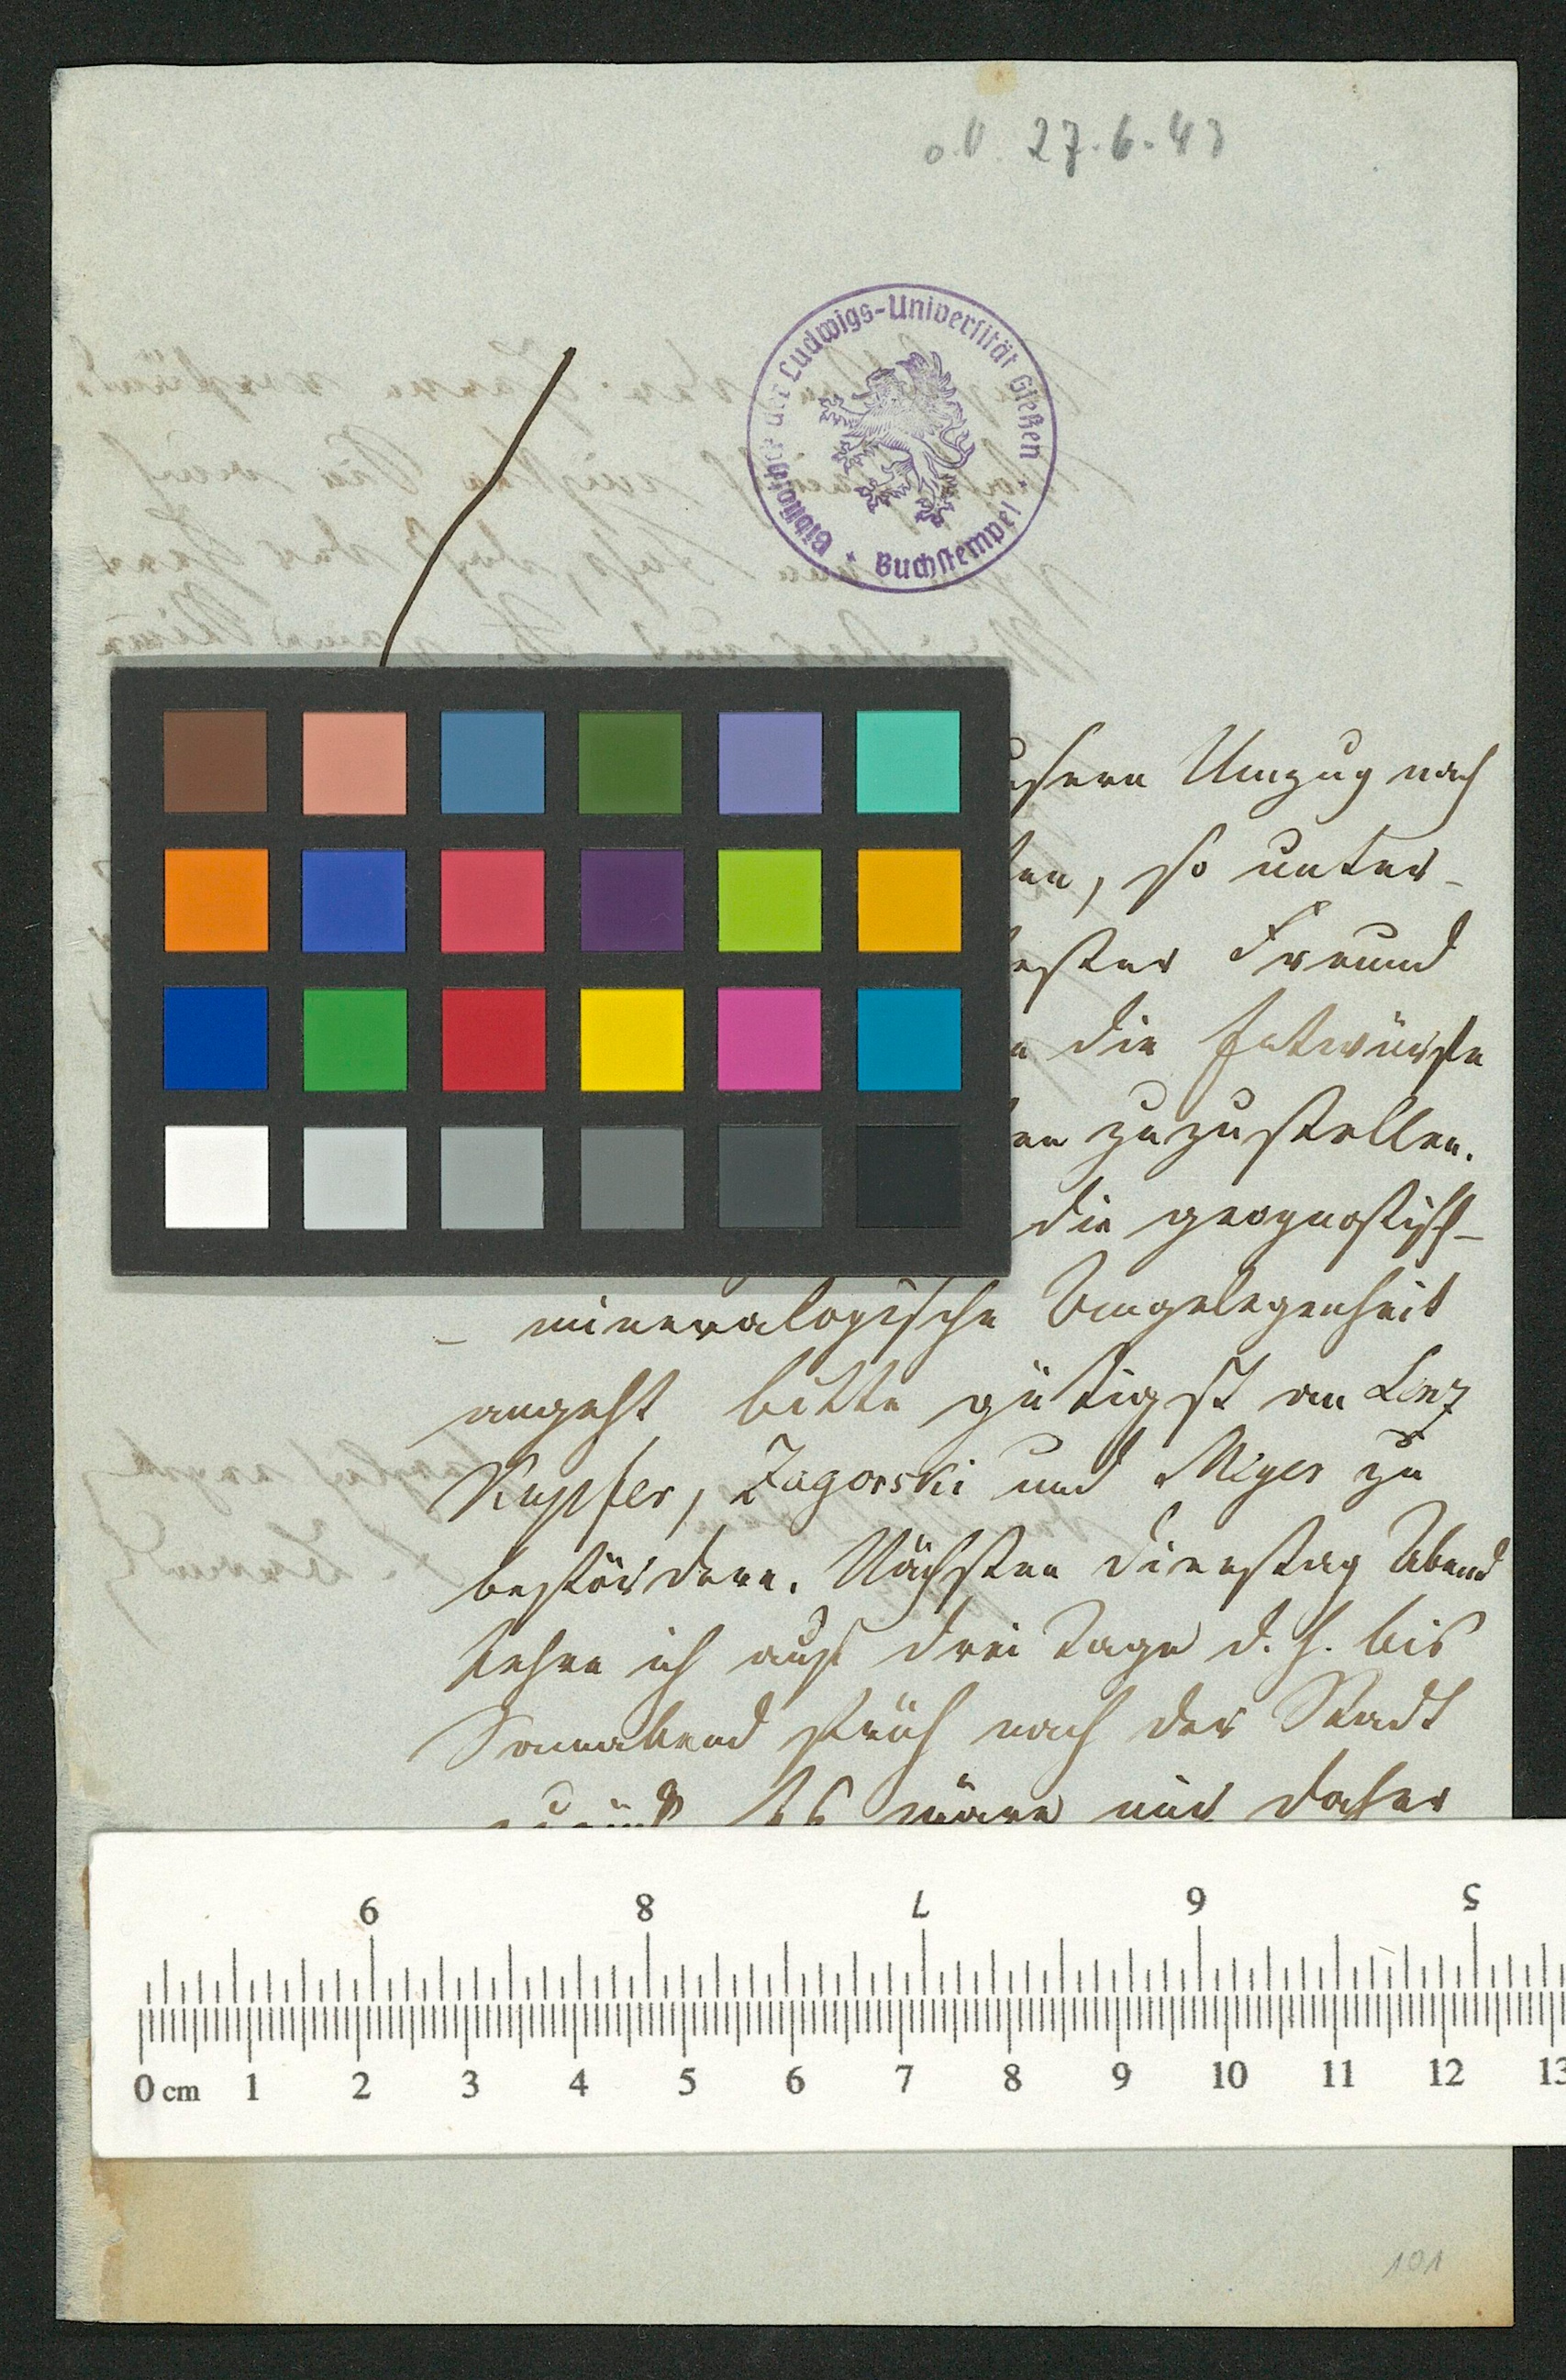 o. D. 27.6.43
Bibliothek der Ludwigs-Universität Gießen
* Buchstempel *
unsern Umzug nach
so unter-
bester Freund
die Entwürfe
zuzustellen.
die geognostisch-
- mineralogische Angelegenheit
angeht bitte gütigst an Lenz
Kupfer, Zagorski und Meyer zu
befördern. Nächsten Dienstag Abend
kehre ich auf drei Tage d. h. bis
Sonnabend früh nach der Stadt
zurück Es wäre mir daher
9 8 7 6 5
0 cm 1 2 3 4 5 6 7 8 9 10 11 12 13
101